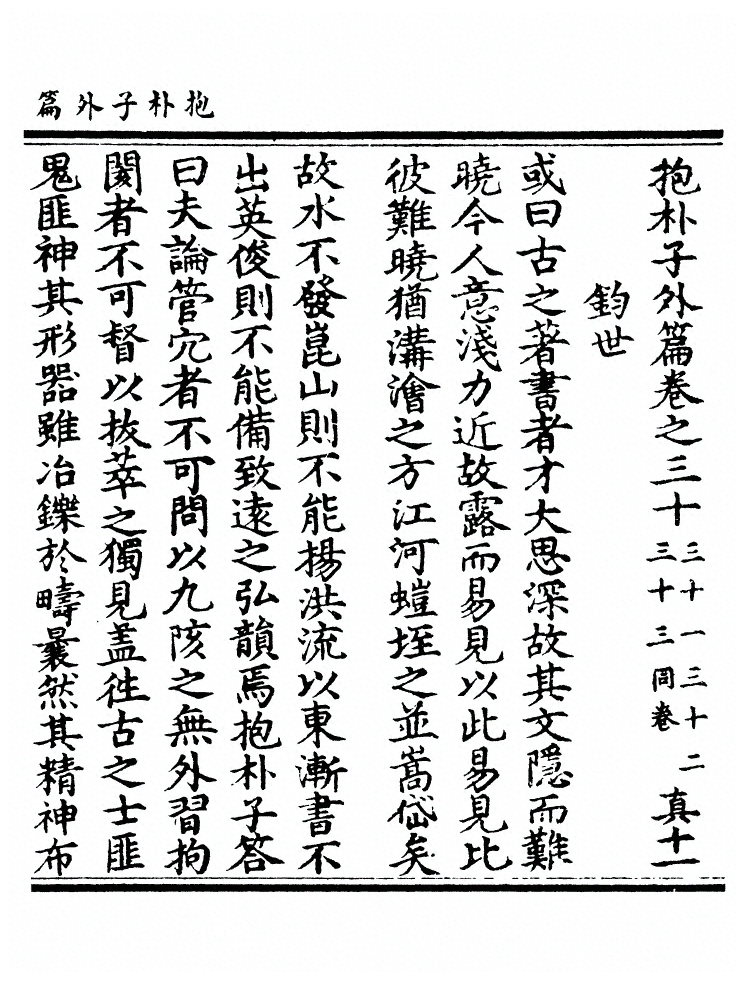 抱朴子外篇
抱朴子外篇卷之三十 三十一三十二三十三同卷 真十一
鈞世
或曰古之著書者才大思深故其文隱而難
曉今人意淺力近故露而易見以此易見比
彼難曉猶溝澮之方江河螘垤之並嵩岱矣
故水不發崑山則不能揚洪流以東漸書不
出英俊則不能備致遠之弘韻焉抱朴子答
曰夫論管穴者不可問以九陔之無外習拘
閡者不可督以拔萃之獨見盖徃古之士匪
鬼匪神其形器雖冶鑠於疇曩然其精神布